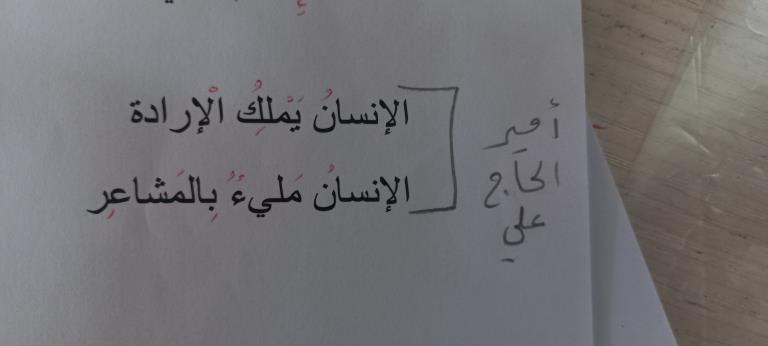 الإنسانُ يَمْلِكُ الْإرادة
الإنسانُ مَليءٌ بِالمَشاعرِ
أمير
الحاج
علي